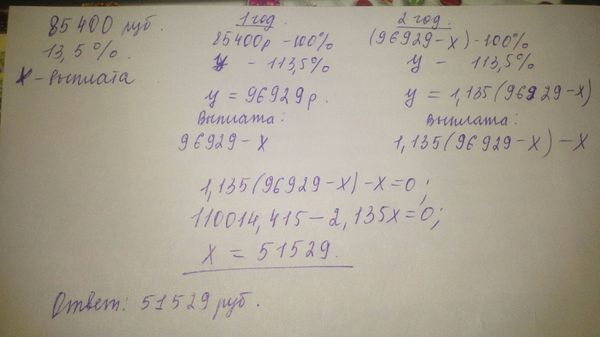 85400 руб.
13,5%.
X - выплата
1 год.
85400р - 100%
y - 113,5%
y = 96929р.
Выплата:
96929 - X
2 год.
(96929-X) - 100%
y - 113,5%
y = 1,135(96929-X)
Выплата:
1,135(96929-X)-X
1,135(96929-X)-X=0;
110014,415-2,135X=0;
X = 51529.
Ответ: 51529 руб.